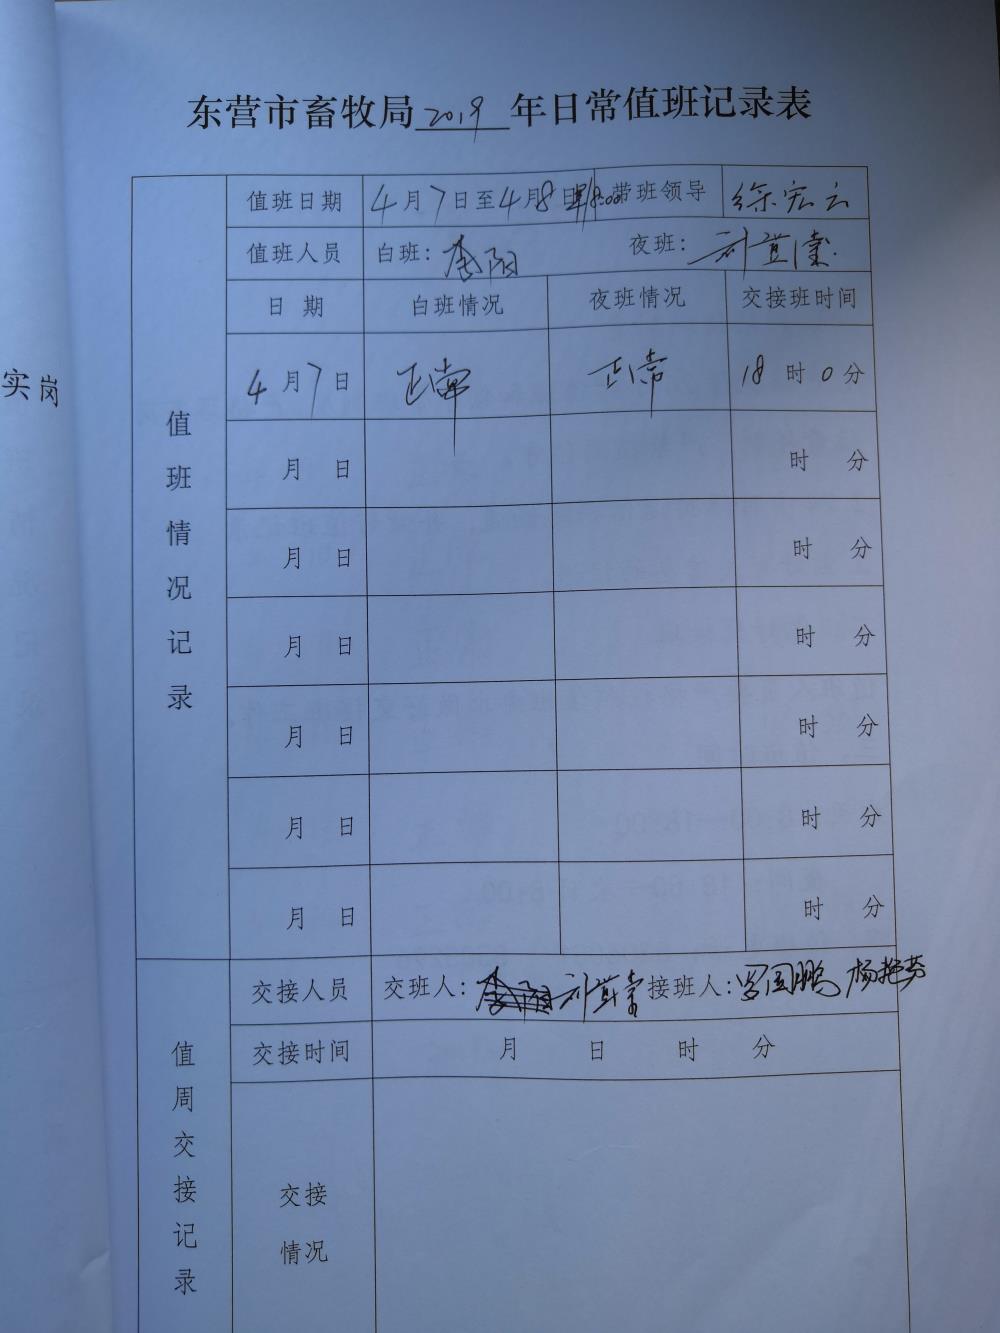 东营市畜牧局2019年日常值班记录表
值班日期 4月7日至4月8日 8:00 带班领导 徐宏云
值班人员 白班: 李阳 夜班:
日期 白班情况 夜班情况 交接班时间
4月7日 正常 正常 18时0分
月 日 时 分
月 日 时 分
月 日 时 分
月 日 时 分
月 日 时 分
月 日 时 分
值班情况记录
交接人员 交班人: 接班人: 罗国鹏 杨艳芬
交接时间 月 日 时 分
交接
情况
值周交接记录
实岗